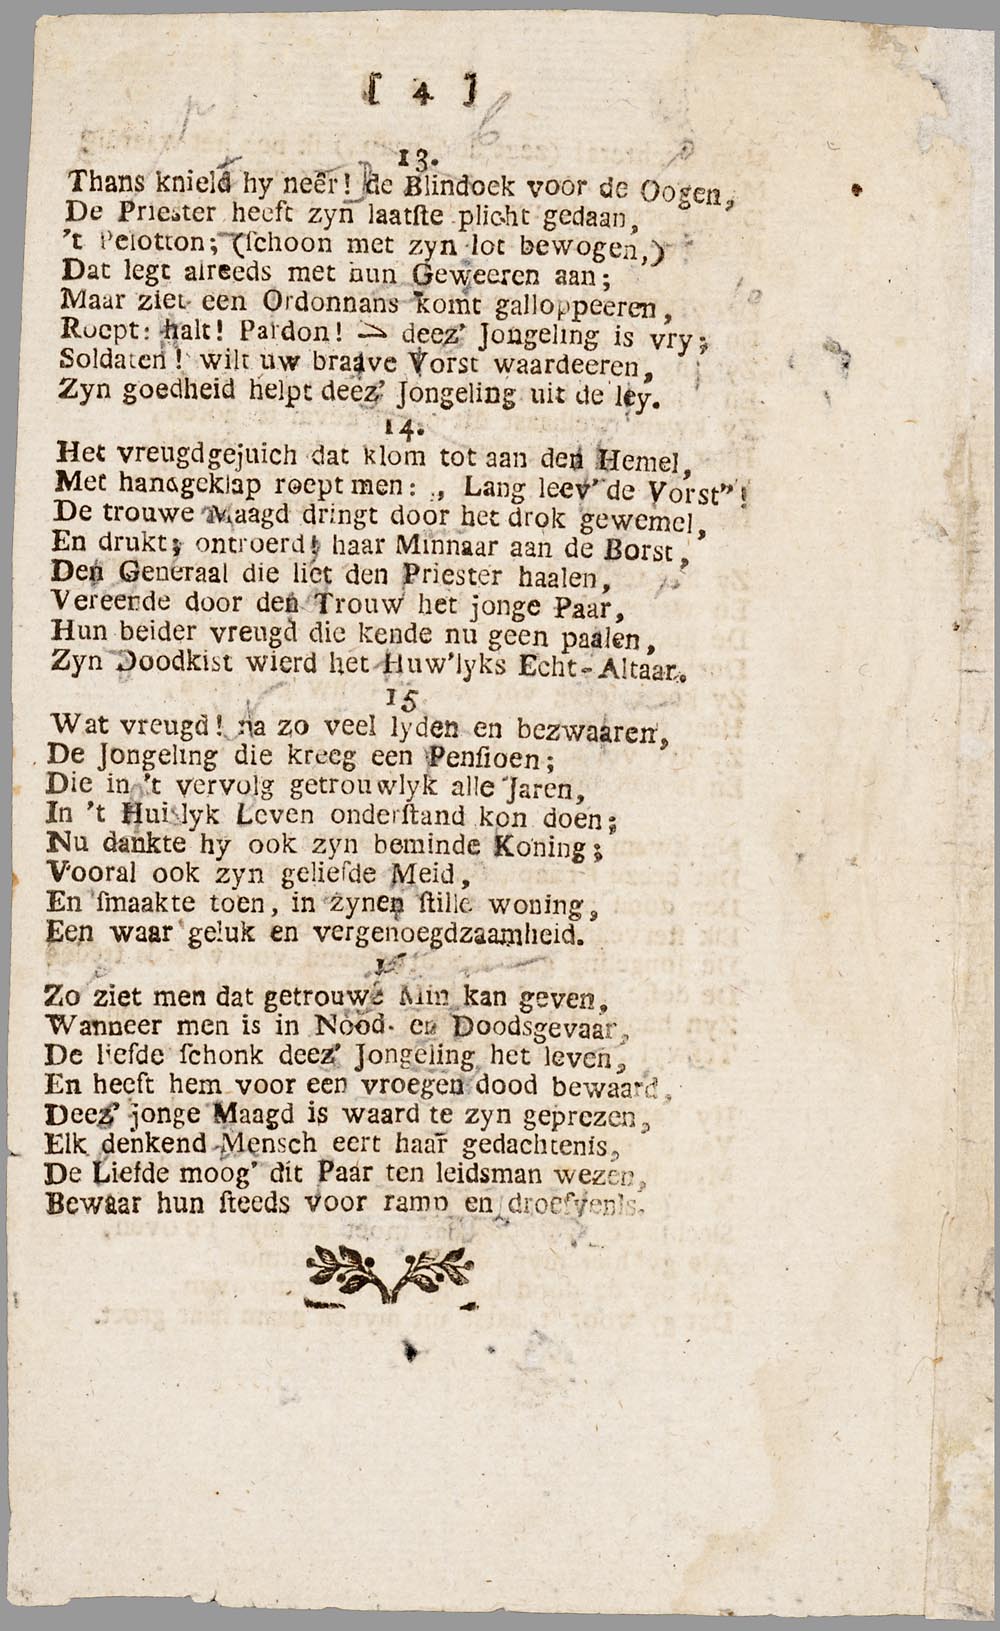 [ 4 ]
13.
Thans knield hy neêr! de Blindoek voor de Oogen,
De Priester heeft zyn laatſte plicht gedaan,
't Pelotton; (ſchoon met zyn lot bewogen,)
Dat legt alreeds met hun Geweeren aan;
Maar ziet een Ordonnans komt galloppeeren,
Roept: halt! Pardon! — deez' Jongeling is vry;
Soldaten! wilt uw braave Vorst waardeeren,
Zyn goedheid helpt deez' Jongeling uit de ley.
14.
Het vreugdgejuich dat klom tot aan den Hemel,
Met handgeklap roept men: „ Lang leev' de Vorst”!
De trouwe Maagd dringt door het drok gewemel,
En drukt, ontroerd! haar Minnaar aan de Borst,
Den Generaal die liet den Priester haalen,
Vereende door den Trouw het jonge Paar,
Hun beider vreugd die kende nu geen paalen,
Zyn Doodkist wierd het Huw'lyks Echt-Altaar.
15
Wat vreugd! na zo veel lyden en bezwaaren,
De Jongeling die kreeg een Penſioen;
Die in 't vervolg getrouwlyk alle Jaren,
In 't Huislyk Leven onderſtand kon doen;
Nu dankte hy ook zyn beminde Koning;
Vooral ook zyn geliefde Meid,
En ſmaakte toen, in zynen ſtille woning,
Een waar geluk en vergenoegdzaamheid.
Zo ziet men dat getrouwe Min kan geven,
Wanneer men is in Nood- en Doodsgevaar,
De liefde ſchonk deez' Jongeling het leven,
En heeft hem voor een vroegen dood bewaard,
Deez' jonge Maagd is waard te zyn geprezen,
Elk denkend Mensch eert haar gedachtenis,
De Liefde moog' dit Paar ten leidsman wezen,
Bewaar hun ſteeds voor ramp en droefvenis.